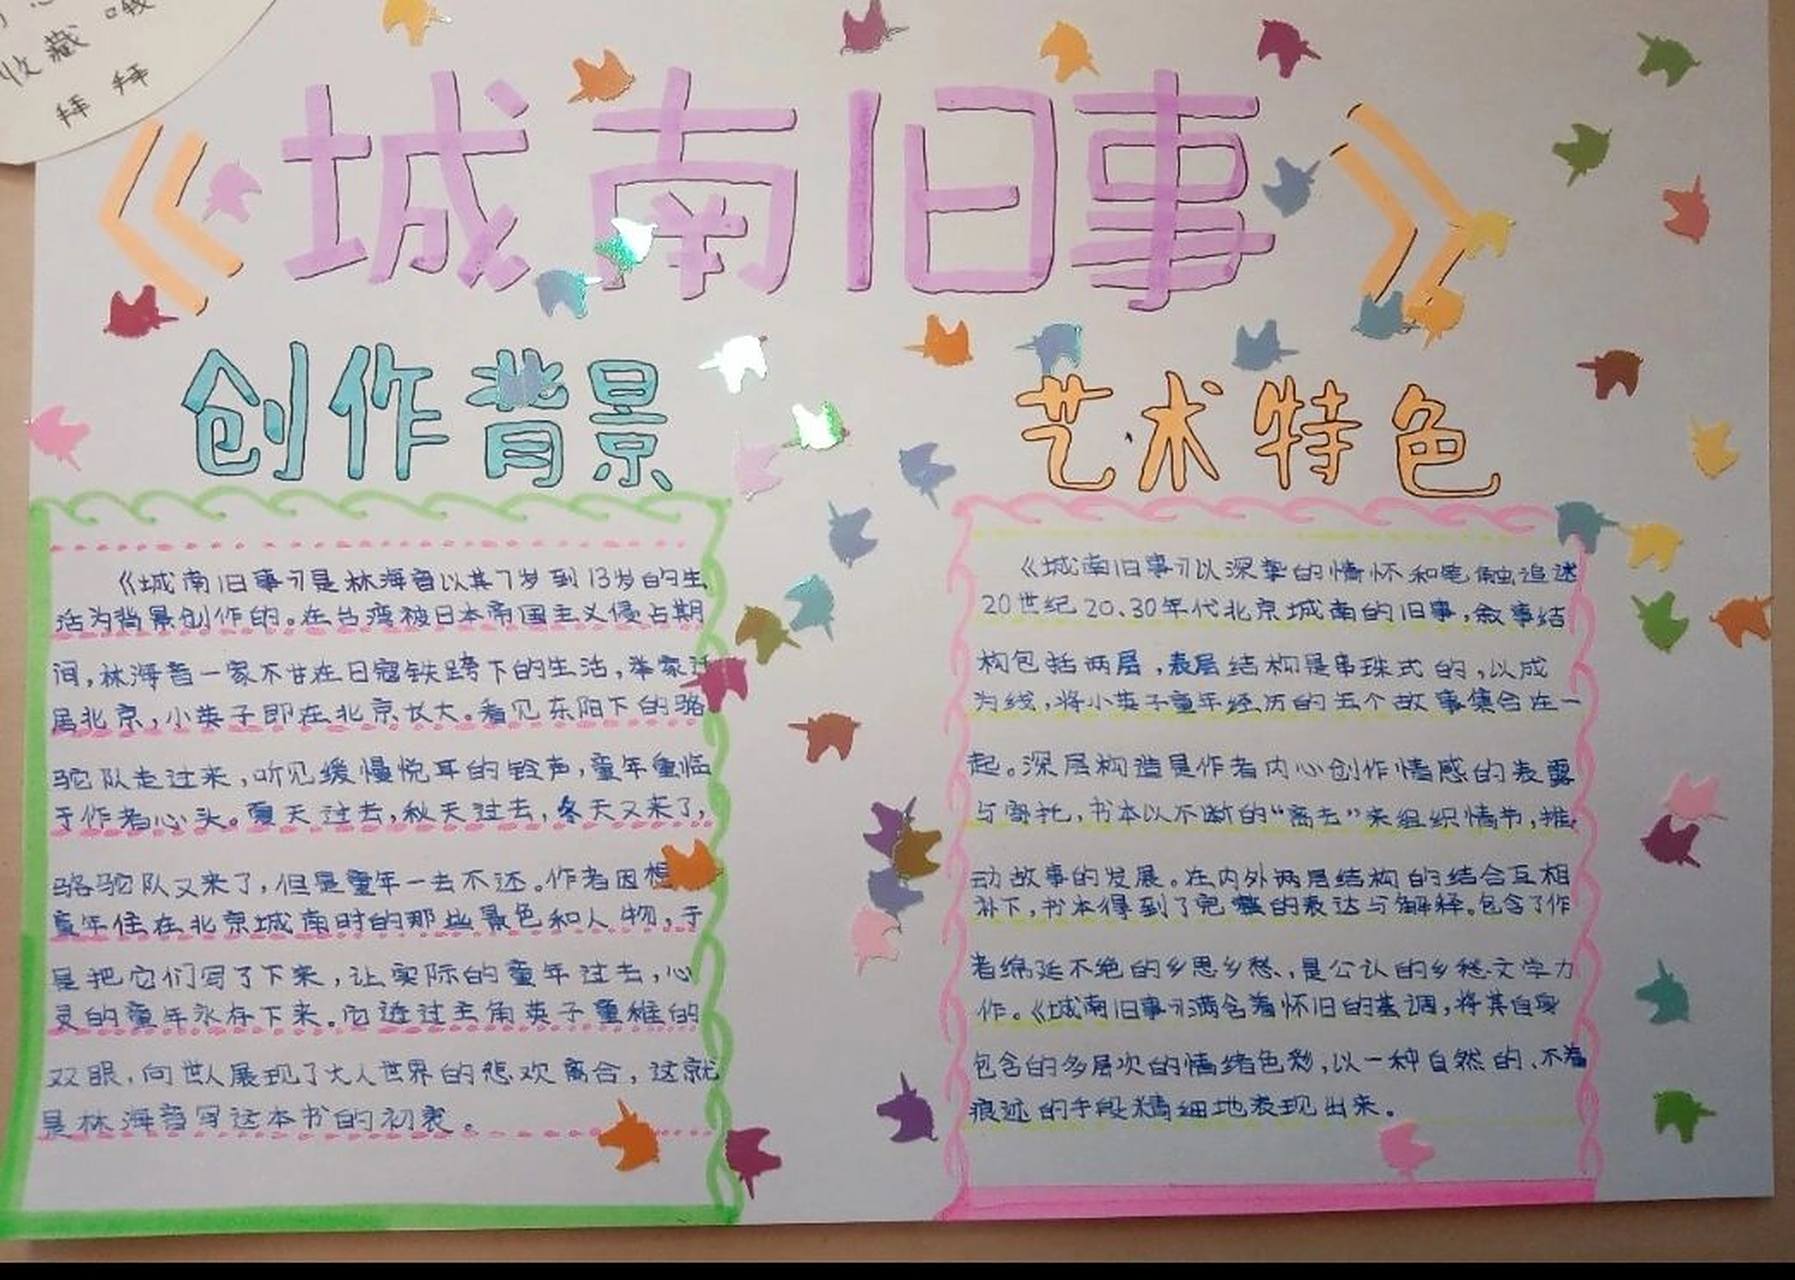 收藏哦
拜拜
《城南旧事》
创作背景
《城南旧事》是林海音以其7岁到13岁的生
活为背景创作的。在台湾被日本帝国主义侵占期
间,林海音一家不甘在日寇铁跨下的生活,举家迁
居北京,小英子即在北京长大。看见东阳下的骆
驼队走过来,听见缓慢悦耳的铃声,童年重临
于作者心头。夏天过去,秋天过去,冬天又来了,
骆驼队又来了,但是童年一去不还。作者因想
童年住在北京城南时的那些景色和人物,于
是把它们写了下来,让实际的童年过去,心
灵的童年永存下来。它透过主角英子童稚的
双眼,向世人展现了大人世界的悲欢离合,这就
是林海音写这本书的初衷。
艺术特色
《城南旧事》以深挚的情怀和笔触追述
20世纪20.30年代北京城南的旧事,叙事结
构包括两层,表层结构是串珠式的,以成
为线,将小英子童年经历的五个故事集合在一
起。深层构造是作者内心创作情感的表露
与寄托,书本以不断的“离去”来组织情节,推
动故事的发展。在内外两层结构的结合互相
补下,书本得到了完整的表达与解释。包含了作
者绵延不绝的乡思乡愁、是公认的乡愁文学力
作。《城南旧事》满含着怀旧的基调,将其自身
包含的多层次的情绪色彩,以一种自然的、不着
痕迹的手段精细地表现出来。